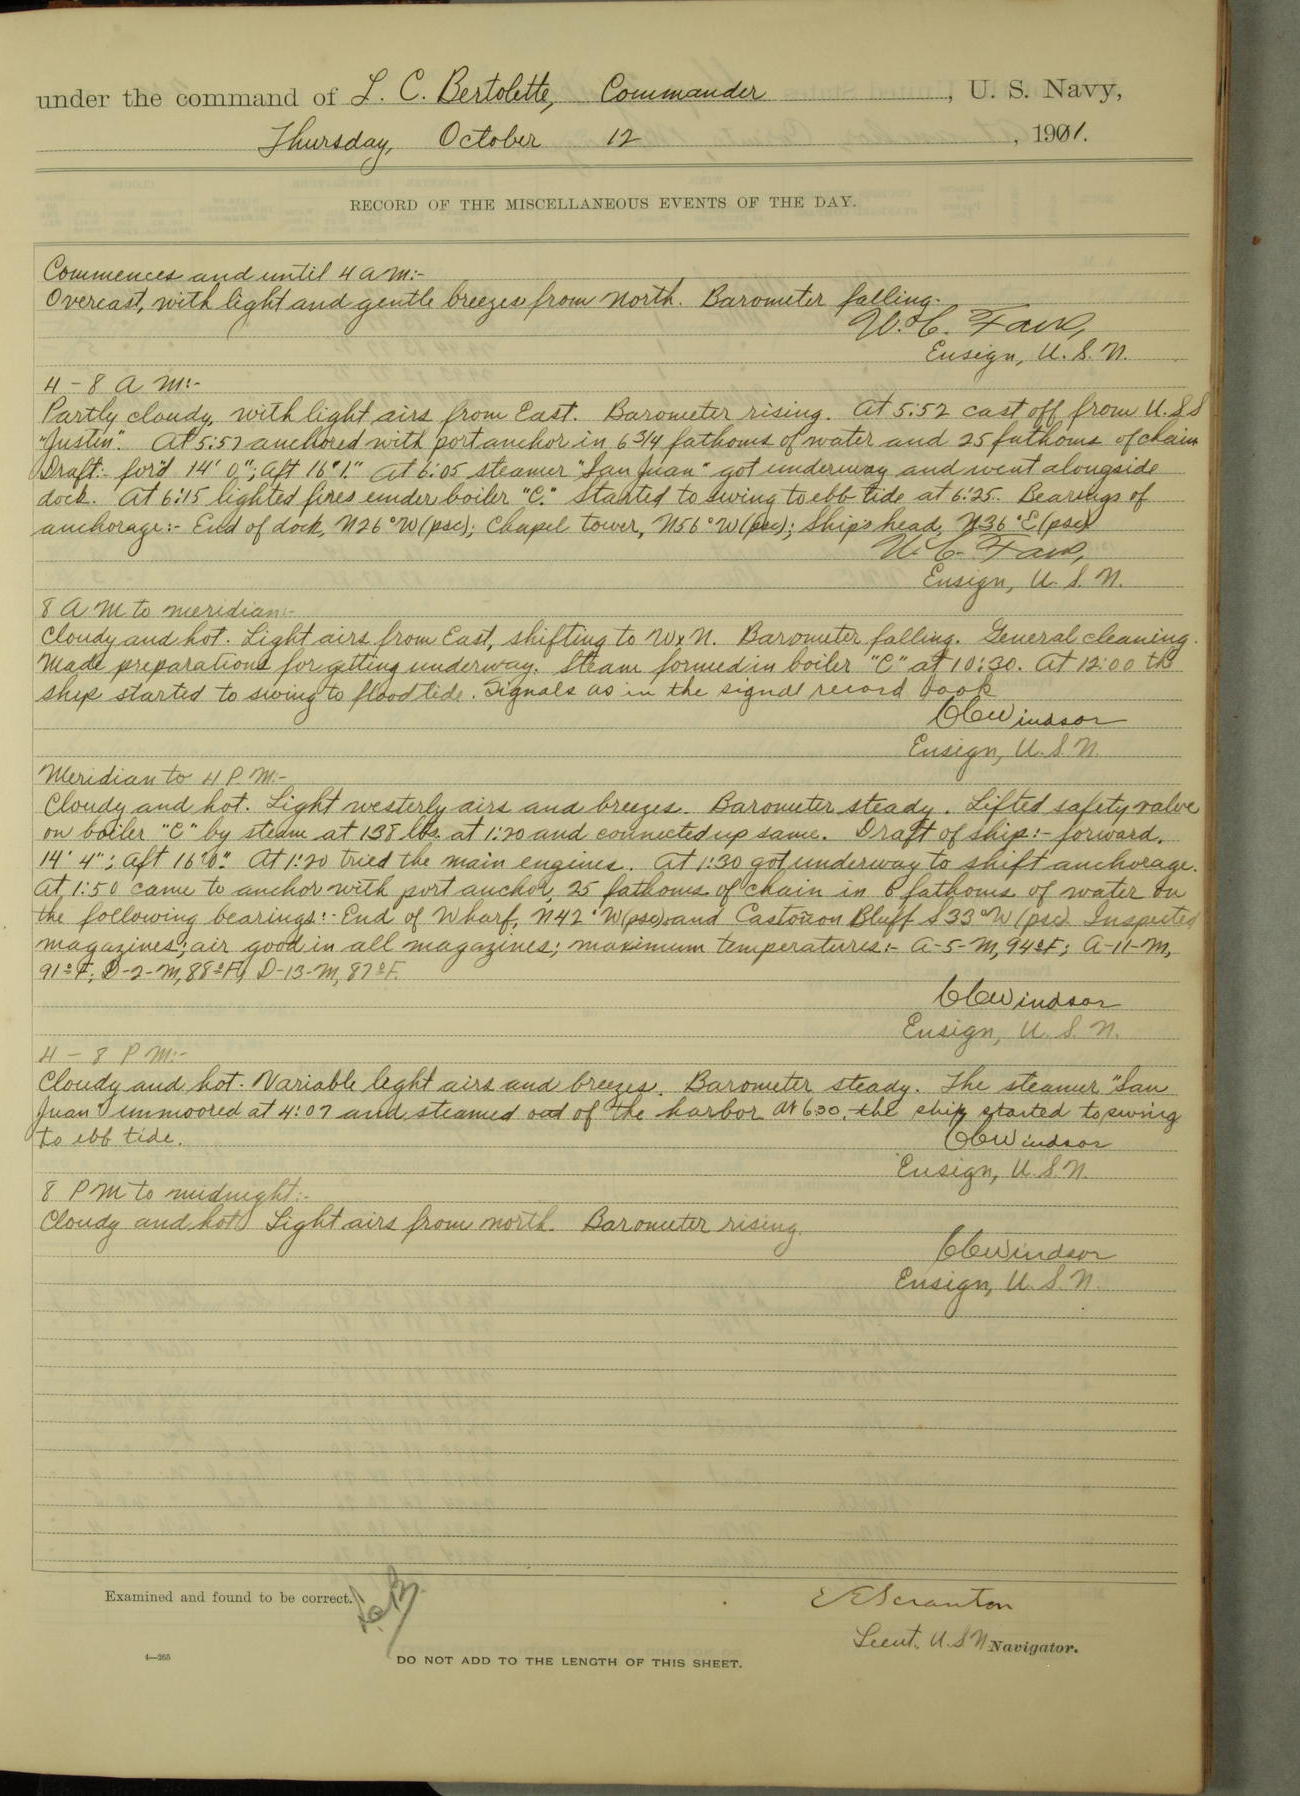 under the command of L. C. Bertolette, Commander, U. S. Navy,
Thursday, October 12, 1901.
RECORD OF THE MISCELLANEOUS EVENTS OF THE DAY.
Commences and until 4 a m:-
Overcast, with light and gentle breezes from North. Barometer falling.
W. C.
Ensign, U. S. N.
4 - 8 A M:-
Partly cloudy, with light airs from East. Barometer rising. At 5:52 cast off from U.S.S
"Justin". At 5:57 anchored with port anchor in 6 3/4 fathoms of water and 25 fathoms of chain
Draft:- for'd 14' 0"; aft 16' 1". At 6:05 steamer "San Juan" got underway and went alongside
dock. At 6:15 lighted fires under boiler "C." Started to swing to ebb tide at 6:25. Bearings of
anchorage:- End of dock, N26°W (psc); Chapel tower, N56°W (psc); Ship's head, N36°E (psc)
W. C.
Ensign, U. S. N.
8 A M to meridian:-
Cloudy and hot. Light airs from East, shifting to WxN. Barometer falling. General cleaning.
Made preparations for getting underway. Steam formed in boiler "C" at 10:30. At 12:00 the
ship started to swing to flood tide. Signals as in the signal record book
CCWindsor
Ensign, U. S. N.
Meridian to 4 P. M:-
Cloudy and hot. Light westerly airs and breezes. Barometer steady. Lifted safety valve
on boiler "C" by steam at 138 lbs. at 1:20 and connected up same. Draft of ship:- forward,
14' 4"; aft 16' 0". At 1:20 tried the main engines. At 1:30 got underway to shift anchorage.
At 1:50 came to anchor with port anchor, 25 fathoms of chain in 6 fathoms of water on
the following bearings:- End of Wharf, N42°W (psc) and Bluff S33°W (psc). Inspected
magazines; air good in all magazines; maximum temperatures:- A-5-M, 94°F; A-11-M,
91°F; D-2-M, 88°F; D-13-M, 87°F.
CCWindsor
Ensign, U. S. N.
4 - 8 P M:-
Cloudy and hot. Variable light airs and breezes. Barometer steady. The steamer "San
Juan" unmoored at 4:07 and steamed out of the harbor At 6:30, the ship started to swing
to ebb tide.
CCWindsor
Ensign, U. S. N.
8 P M to midnight:-
Cloudy and hot. Light airs from north. Barometer rising.
CCWindsor
Ensign, U. S. N.
Examined and found to be correct.
L.C.B.
E Scranton
Lieut. U. S N Navigator.
4—265
DO NOT ADD TO THE LENGTH OF THIS SHEET.